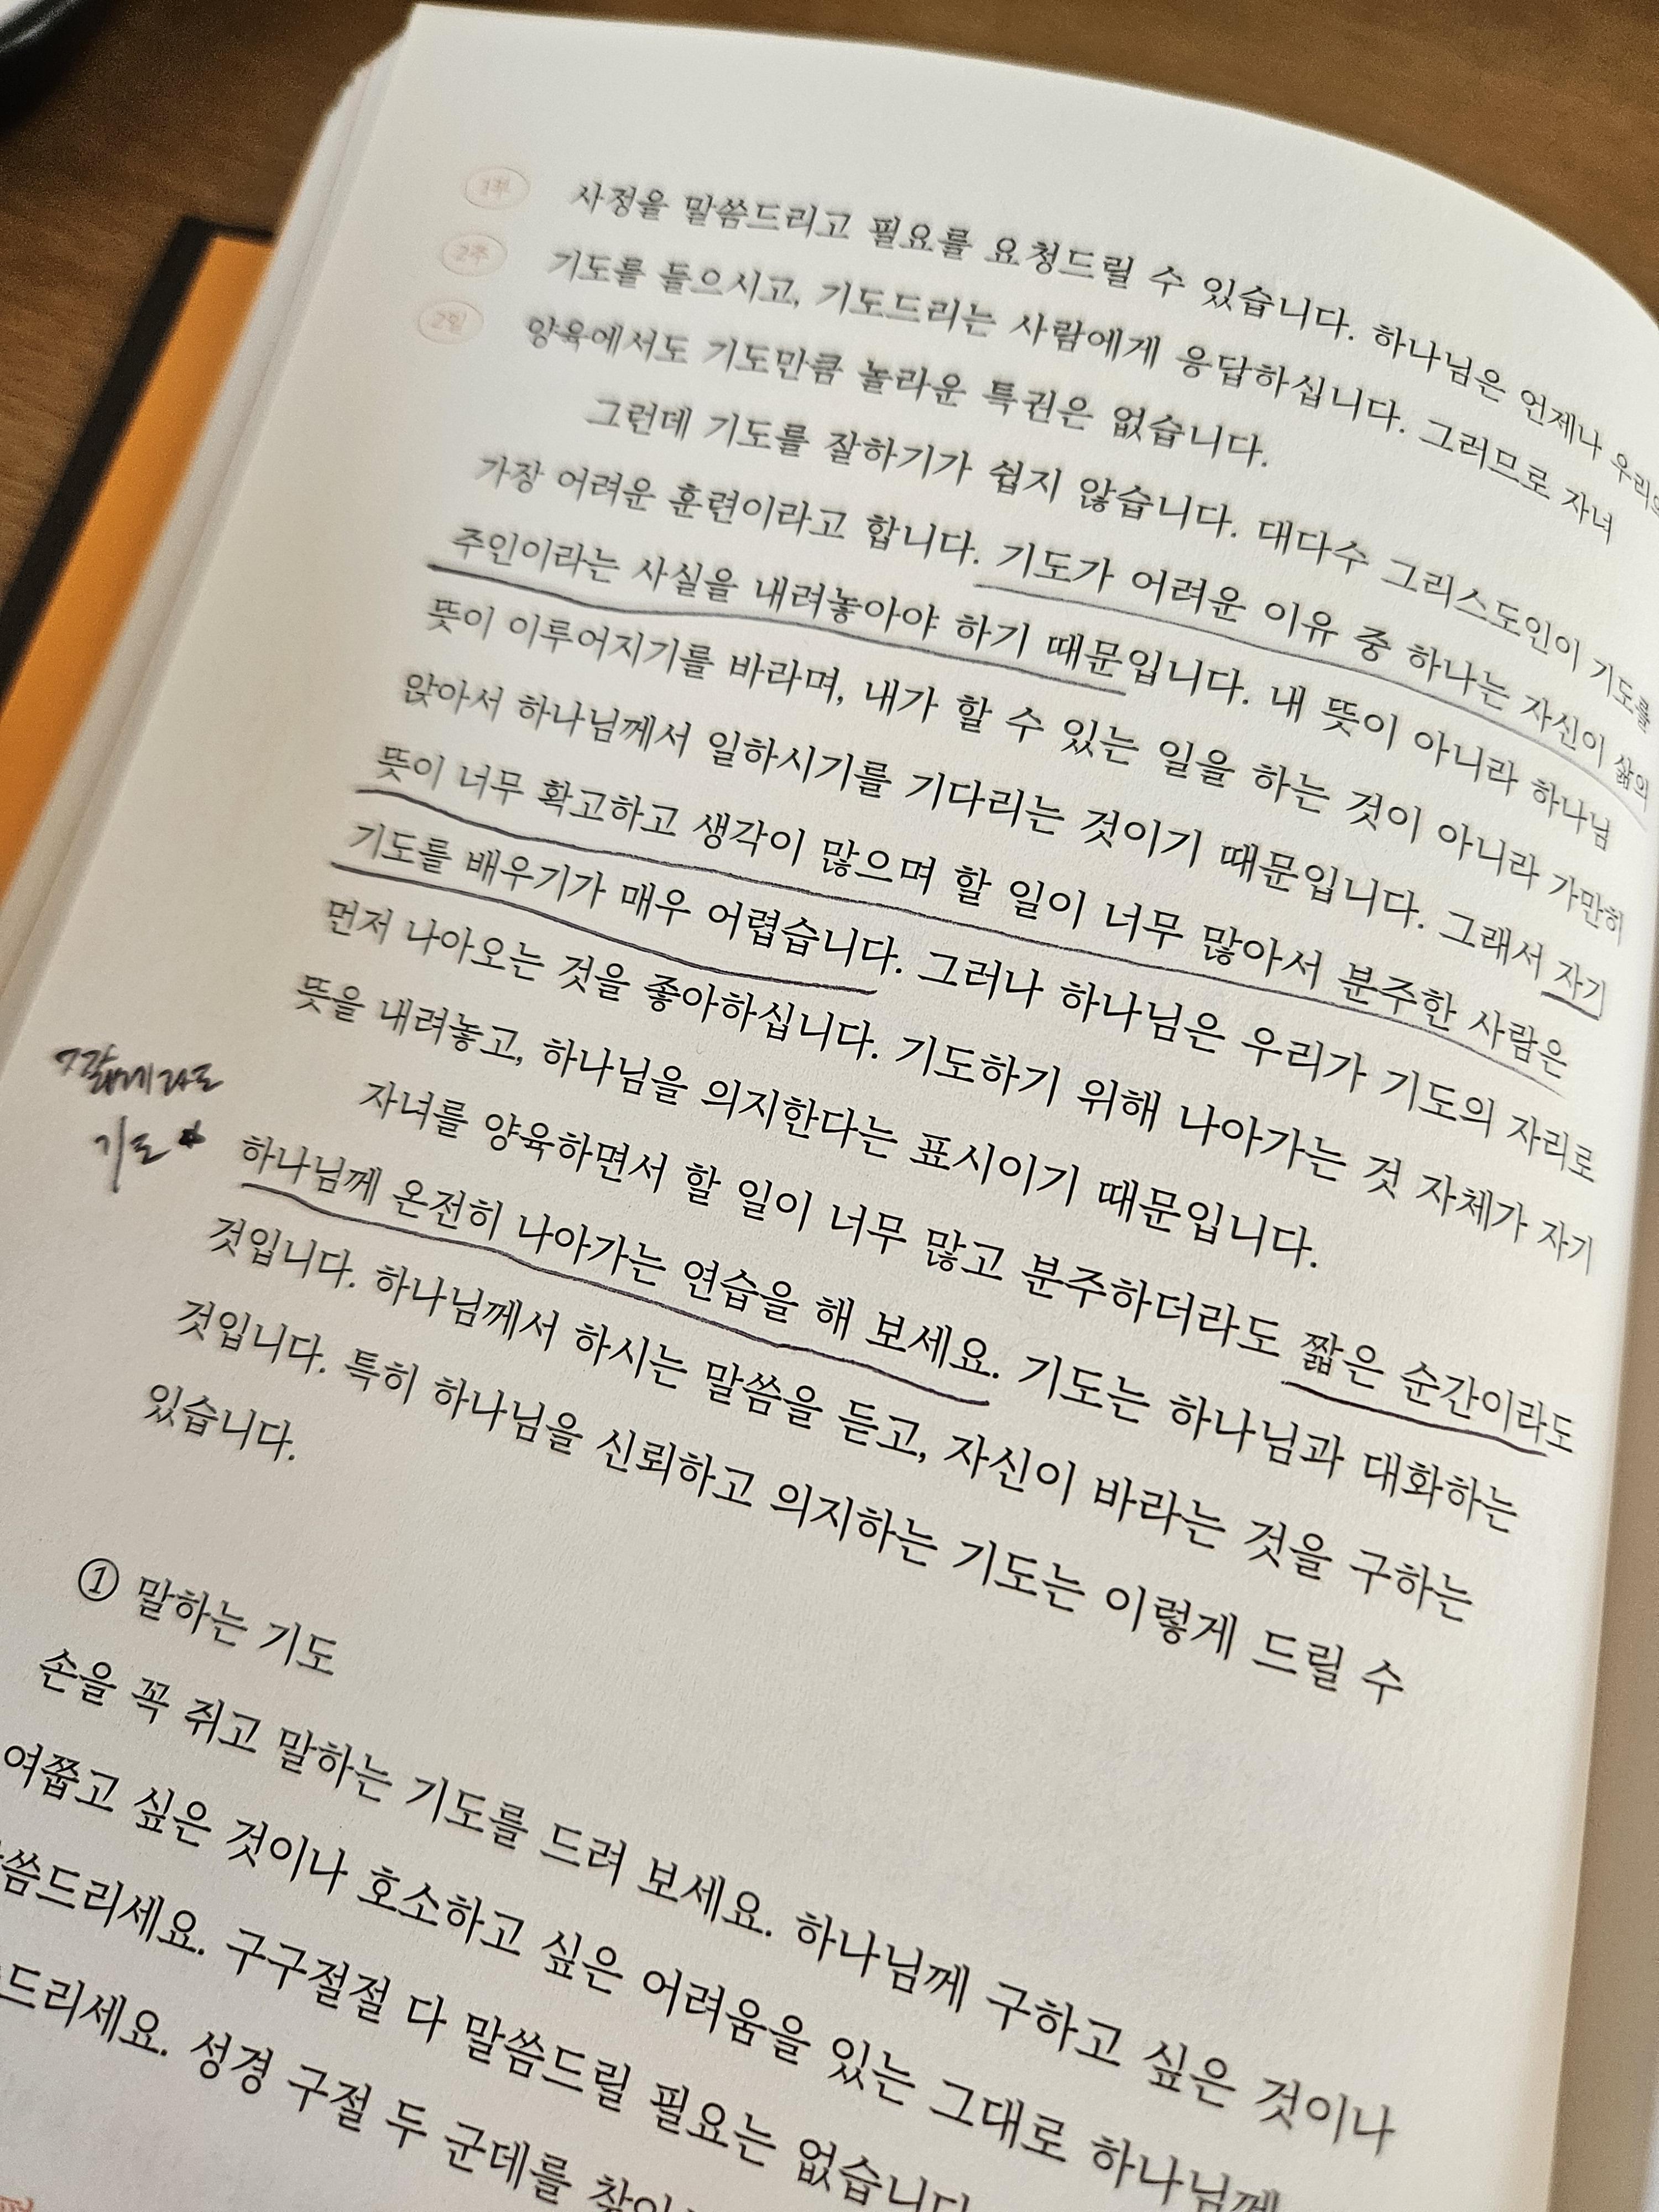 1부
2주
2일
사정을 말씀드리고 필요를 요청드릴 수 있습니다. 하나님은 언제나 우리의
기도를 들으시고, 기도드리는 사람에게 응답하십니다. 그러므로 자녀
양육에서도 기도만큼 놀라운 특권은 없습니다.
그런데 기도를 잘하기가 쉽지 않습니다. 대다수 그리스도인이 기도를
가장 어려운 훈련이라고 합니다. 기도가 어려운 이유 중 하나는 자신이 삶의
주인이라는 사실을 내려놓아야 하기 때문입니다. 내 뜻이 아니라 하나님
뜻이 이루어지기를 바라며, 내가 할 수 있는 일을 하는 것이 아니라 가만히
앉아서 하나님께서 일하시기를 기다리는 것이기 때문입니다. 그래서 자기
뜻이 너무 확고하고 생각이 많으며 할 일이 너무 많아서 분주한 사람은
기도를 배우기가 매우 어렵습니다. 그러나 하나님은 우리가 기도의 자리로
먼저 나아오는 것을 좋아하십니다. 기도하기 위해 나아가는 것 자체가 자기
뜻을 내려놓고, 하나님을 의지한다는 표시이기 때문입니다.
자녀를 양육하면서 할 일이 너무 많고 분주하더라도 짧은 순간이라도
하나님께 온전히 나아가는 연습을 해 보세요. 기도는 하나님과 대화하는
것입니다. 하나님께서 하시는 말씀을 듣고, 자신이 바라는 것을 구하는
것입니다. 특히 하나님을 신뢰하고 의지하는 기도는 이렇게 드릴 수
있습니다.
짧게라도
기도
① 말하는 기도
손을 꼭 쥐고 말하는 기도를 드려 보세요. 하나님께 구하고 싶은 것이나
여쭙고 싶은 것이나 호소하고 싶은 어려움을 있는 그대로 하나님께
씀드리세요. 구구절절 다 말씀드릴 필요는 없습니다
드리세요. 성경 구절 두 군데를